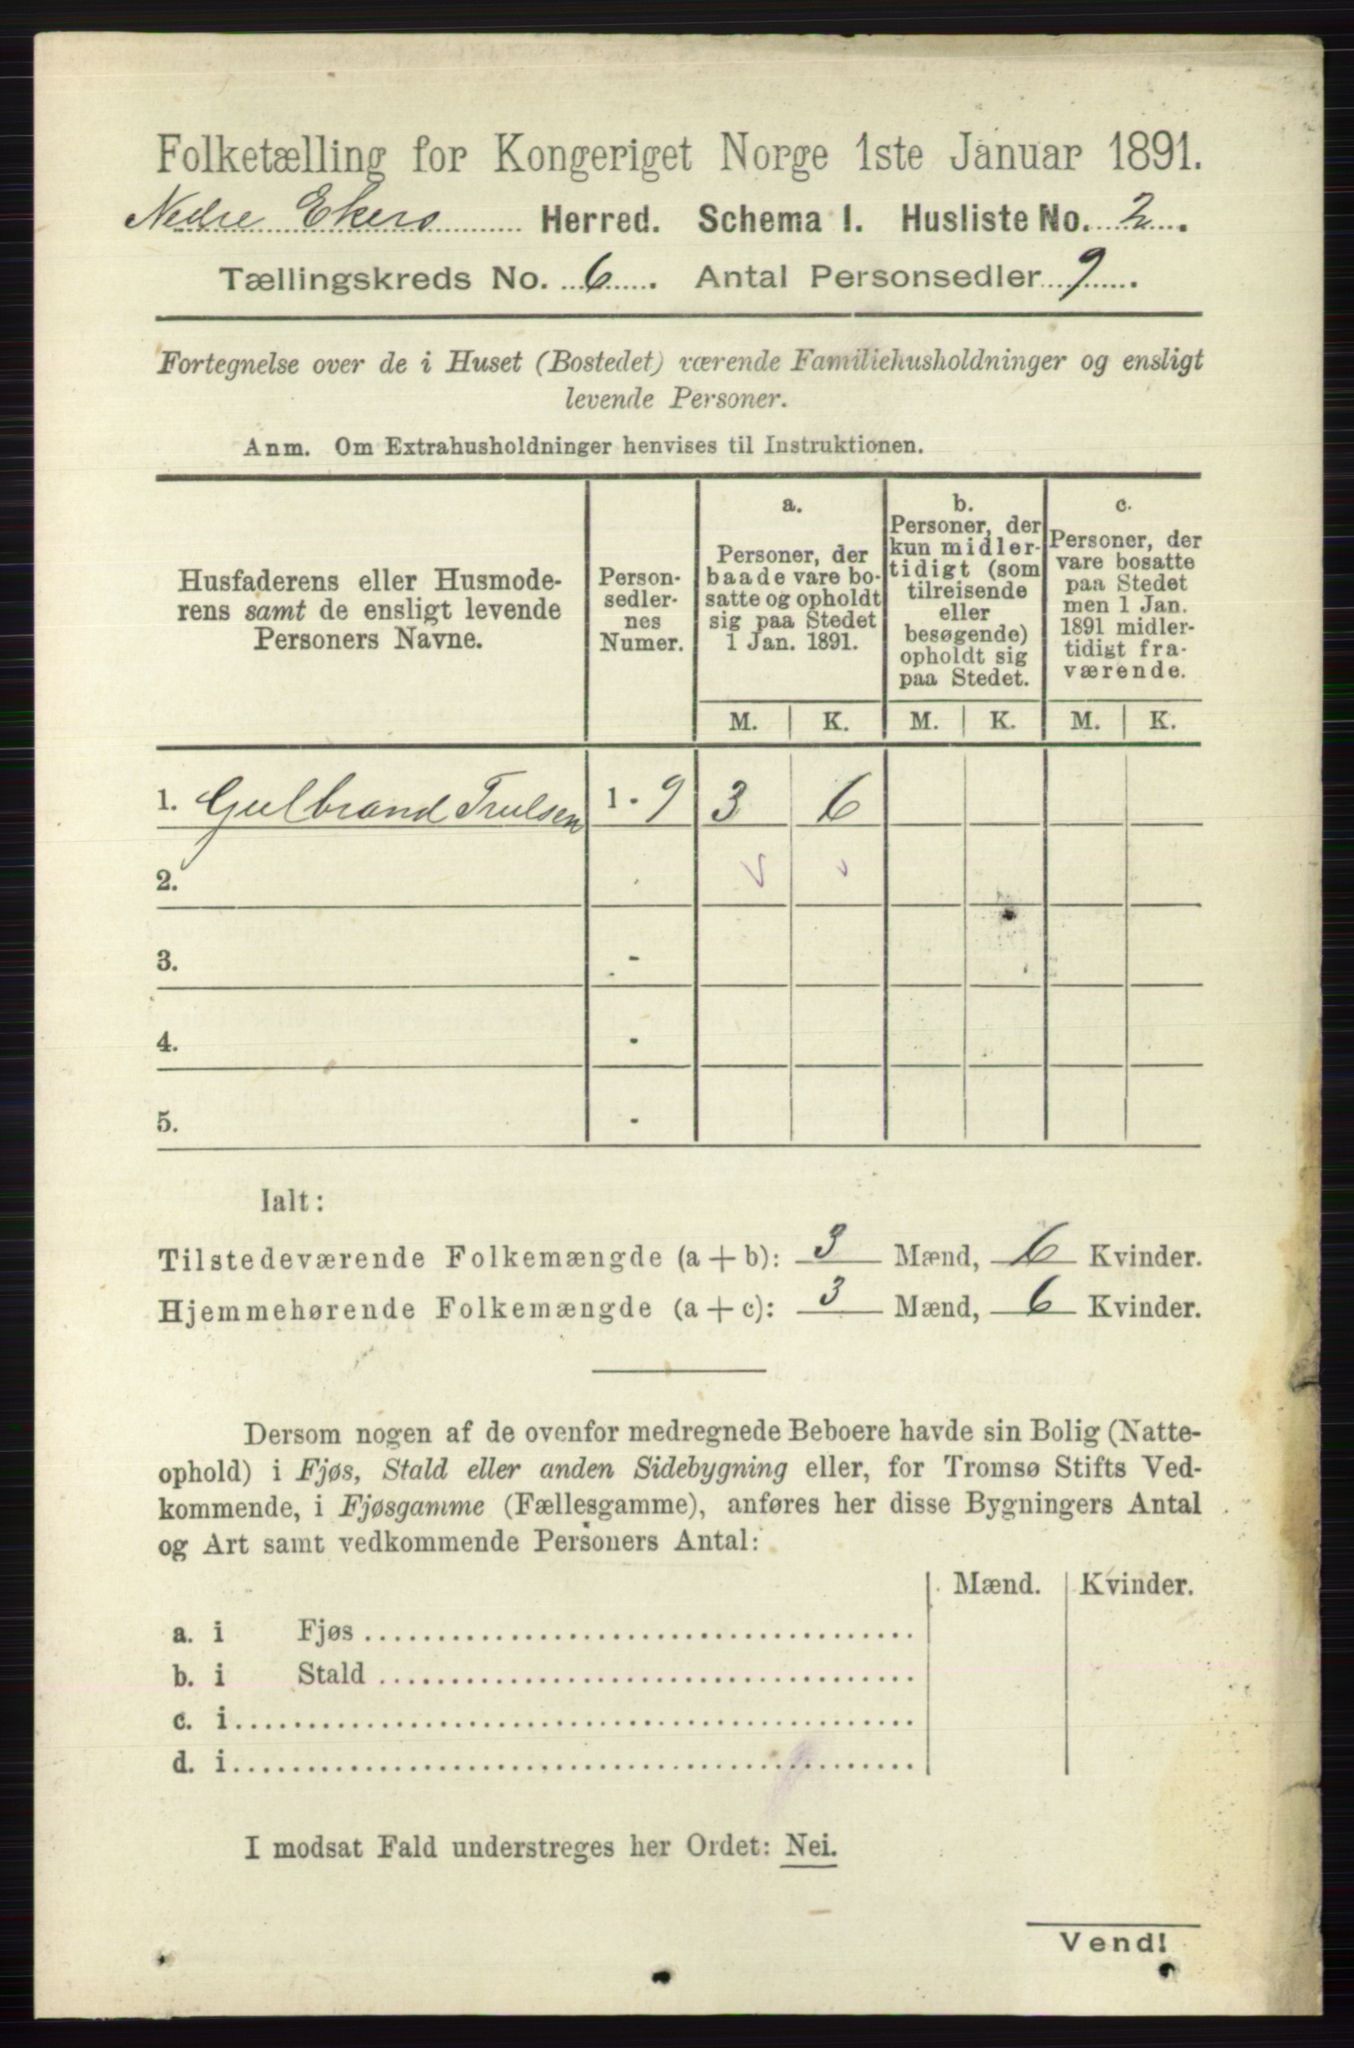 Folketælling for Kongeriget Norge 1ste Januar 1891.
Nedre Ekers Herred. Schema I. Husliste No. 2.
Tællingskreds No. 6. Antal Personsedler 9.
Fortegnelse over de i Huset (Bostedet) værende Familiehusholdninger og ensligt
levende Personer.
Anm. Om Extrahusholdninger henvises til Instruktionen.
Husfaderens eller Husmode-
rens samt de ensligt levende
Personers Navne.
Person-
sedler-
nes
Numer.
a.
Personer, der
baade vare bo-
satte og opholdt
sig paa Stedet
1 Jan. 1891.
b.
Personer, der
kun midler-
tidigt (som
tilreisende
eller
besøgende)
opholdt sig
paa Stedet.
c.
Personer, der
vare bosatte
paa Stedet
men 1 Jan.
1891 midler-
tidigt fra-
værende.
M. K. M. K. M. K.
1. Gulbrand Trulsen 1 - 9 3 6
2.
3. -
4. -
5. -
Ialt:
Tilstedeværende Folkemængde (a + b): 3 Mænd, 6 Kvinder.
Hjemmehørende Folkemængde (a + c): 3 Mænd, 6 Kvinder.
Dersom nogen af de ovenfor medregnede Beboere havde sin Bolig (Natte-
ophold) i Fjøs, Stald eller anden Sidebygning eller, for Tromsø Stifts Ved-
kommende, i Fjøsgamme (Fællesgamme), anføres her disse Bygningers Antal
og Art samt vedkommende Personers Antal:
Mænd. Kvinder.
a. i Fjøs
b. i Stald
c. i
d. i
I modsat Fald understreges her Ordet: Nei.
Vend!